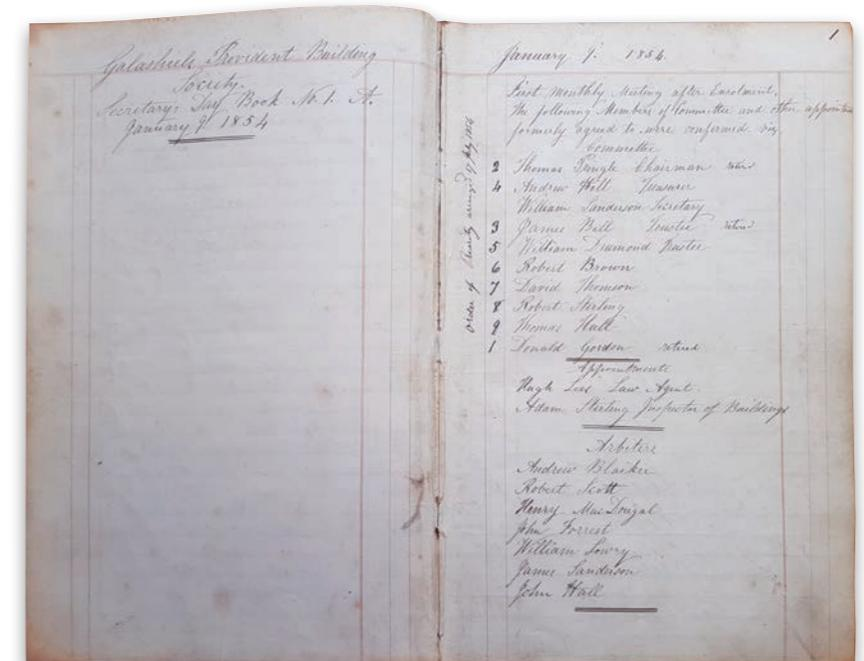 Galashiels Provident Building
Society.
Secretary's Day Book No. 1. A.
January 9. 1854
1
January 9. 1854.
First Monthly Meeting after Enrolment.
The following Members of Committee and other appointments
formerly agreed to were confirmed viz
Committee
2 Thomas Pringle Chairman retired
4 Andrew Hill Treasurer
William Sanderson Secretary
3 James Bell Trustee retired
5 William Drumond Trustee
6 Robert Brown
7 David Thomson
8 Robert Sterling
9 Thomas Hall
1 Donald Gordon retired
Appointments
Hugh Lees Law Agent.
Adam Sterling Inspector of Buildings
Arbiters
Andrew Blaikie
Robert Scott
Henry MacDougal
John Forrest
William Lowry
James Sanderson
John Hall
Order of